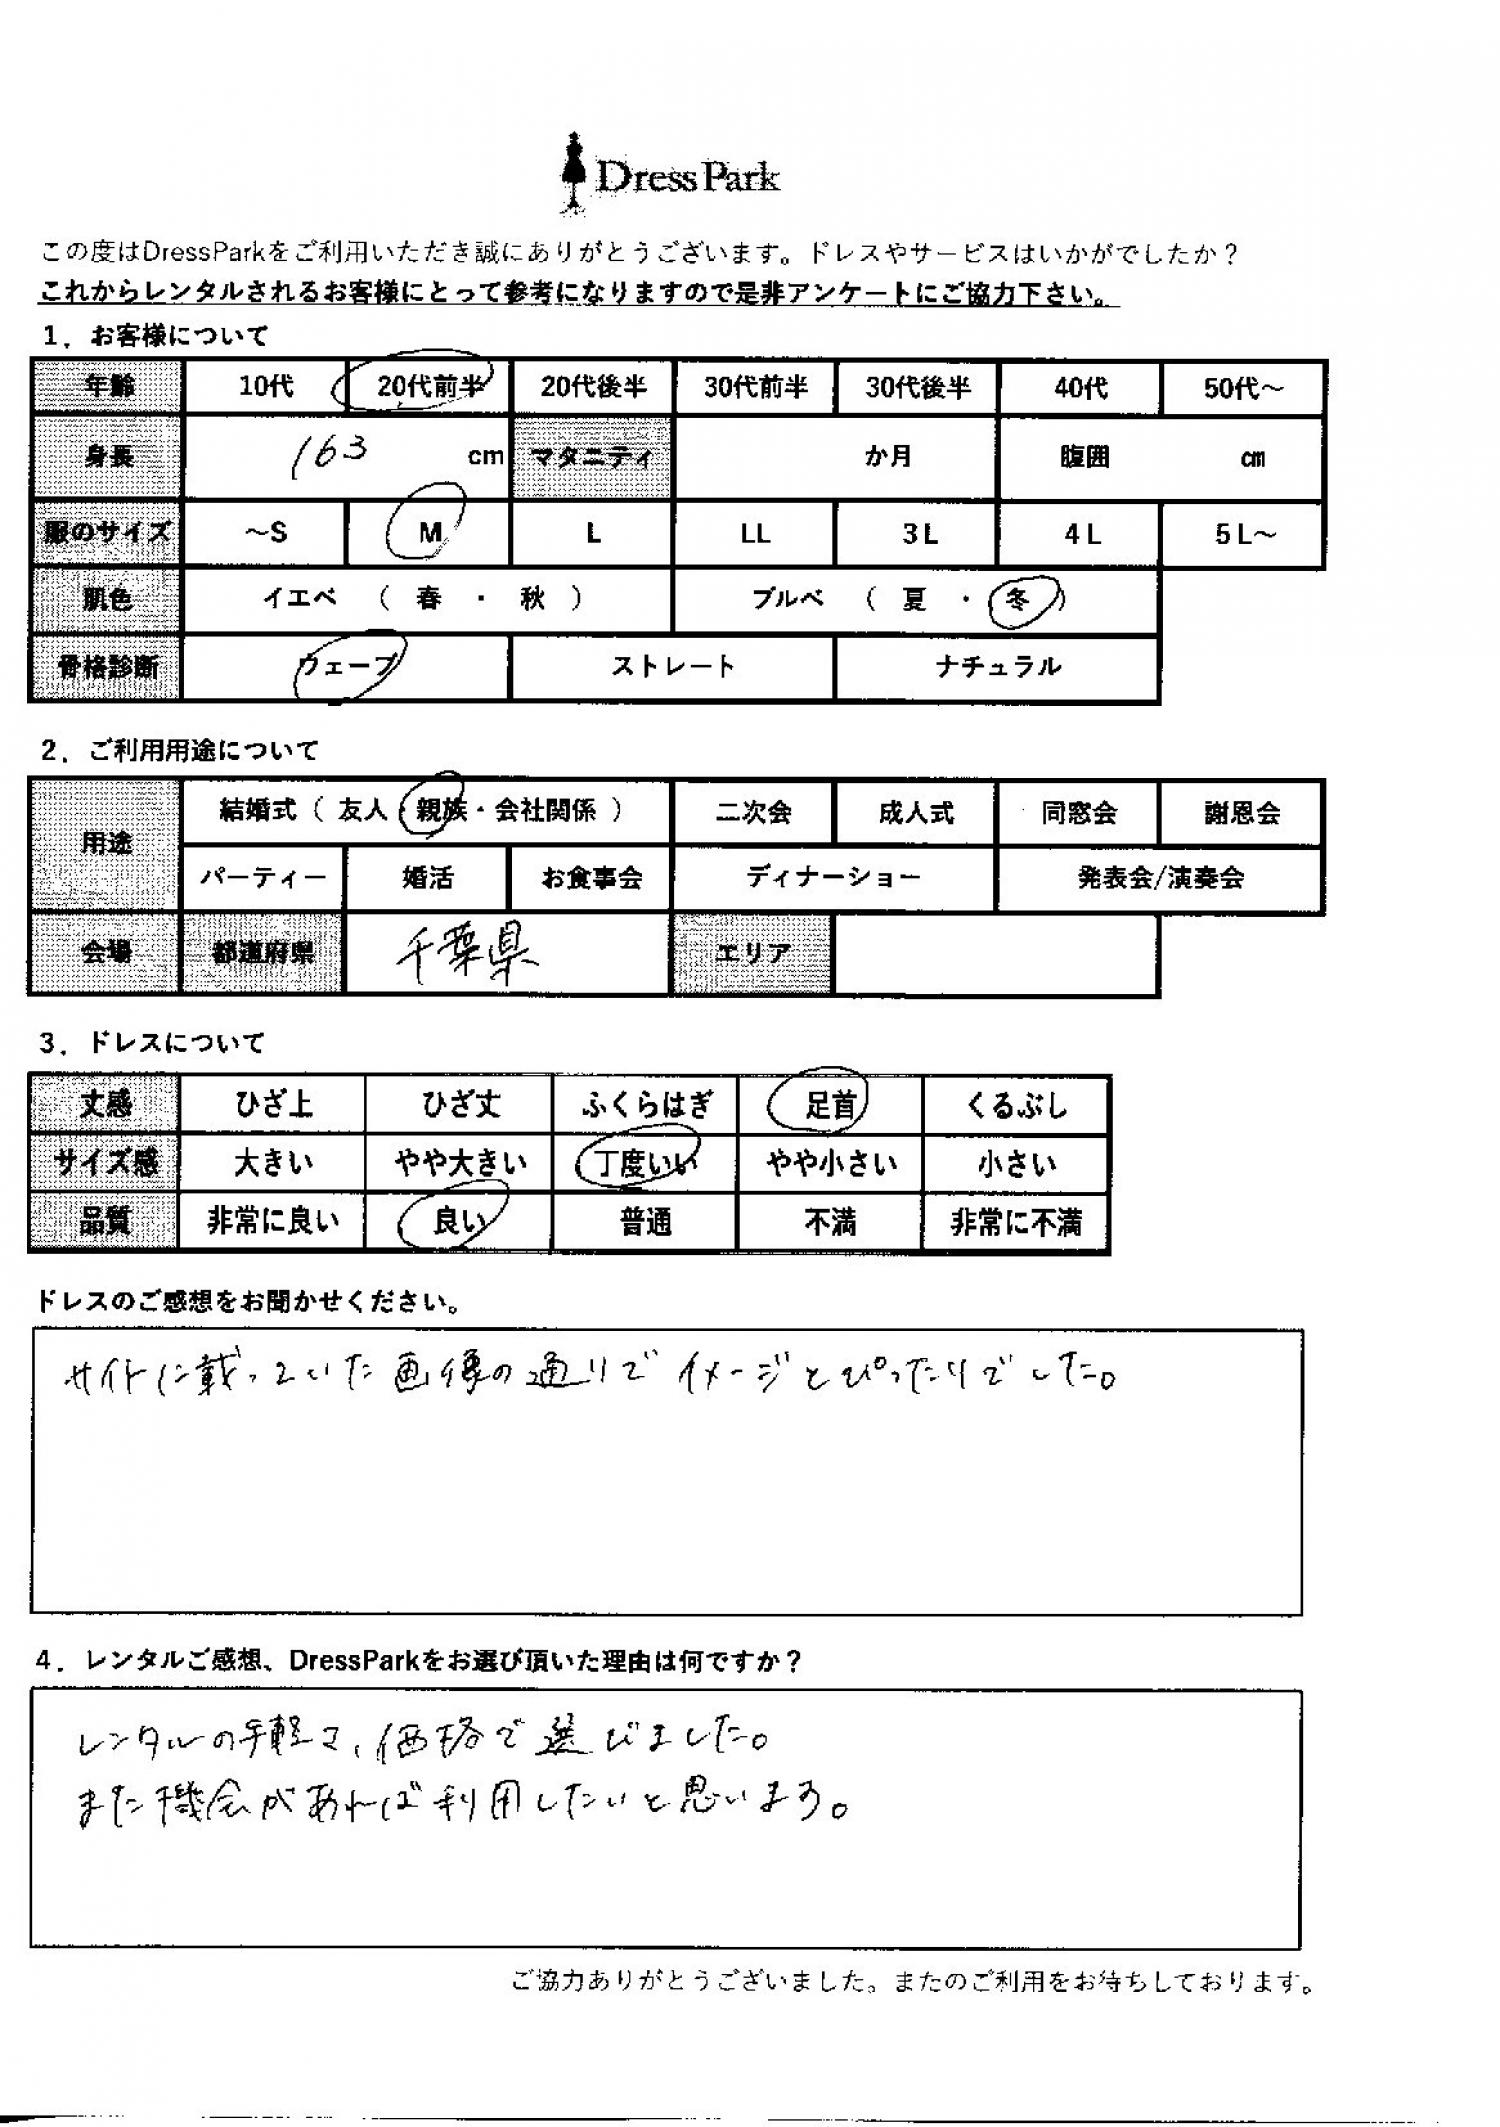 Dress Park
この度はDressParkをご利用いただき誠にありがとうございます。ドレスやサービスはいかがでしたか？
これからレンタルされるお客様にとって参考になりますので是非アンケートにご協力下さい。
１．お客様について
年齢 10代 20代前半 20代後半 30代前半 30代後半 40代 50代～
身長 163 cm マタニティ か月 腹囲 ㎝
服のサイズ ～S M L LL 3L 4L 5L～
肌色 イエベ （ 春 ・ 秋 ） ブルベ （ 夏 ・ 冬 ）
骨格診断 ウェーブ ストレート ナチュラル
２．ご利用用途について
用途 結婚式（ 友人・親族・会社関係 ） 二次会 成人式 同窓会 謝恩会
パーティー 婚活 お食事会 ディナーショー 発表会/演奏会
会場 都道府県 千葉県 エリア
３．ドレスについて
丈感 ひざ上 ひざ丈 ふくらはぎ 足首 くるぶし
サイズ感 大きい やや大きい 丁度いい やや小さい 小さい
品質 非常に良い 良い 普通 不満 非常に不満
ドレスのご感想をお聞かせください。
サイトに載っていた画像の通りでイメージとぴったりでした。
４．レンタルご感想、DressParkをお選び頂いた理由は何ですか？
レンタルの手軽さ、価格で選びました。
また機会があれば利用したいと思います。
ご協力ありがとうございました。またのご利用をお待ちしております。